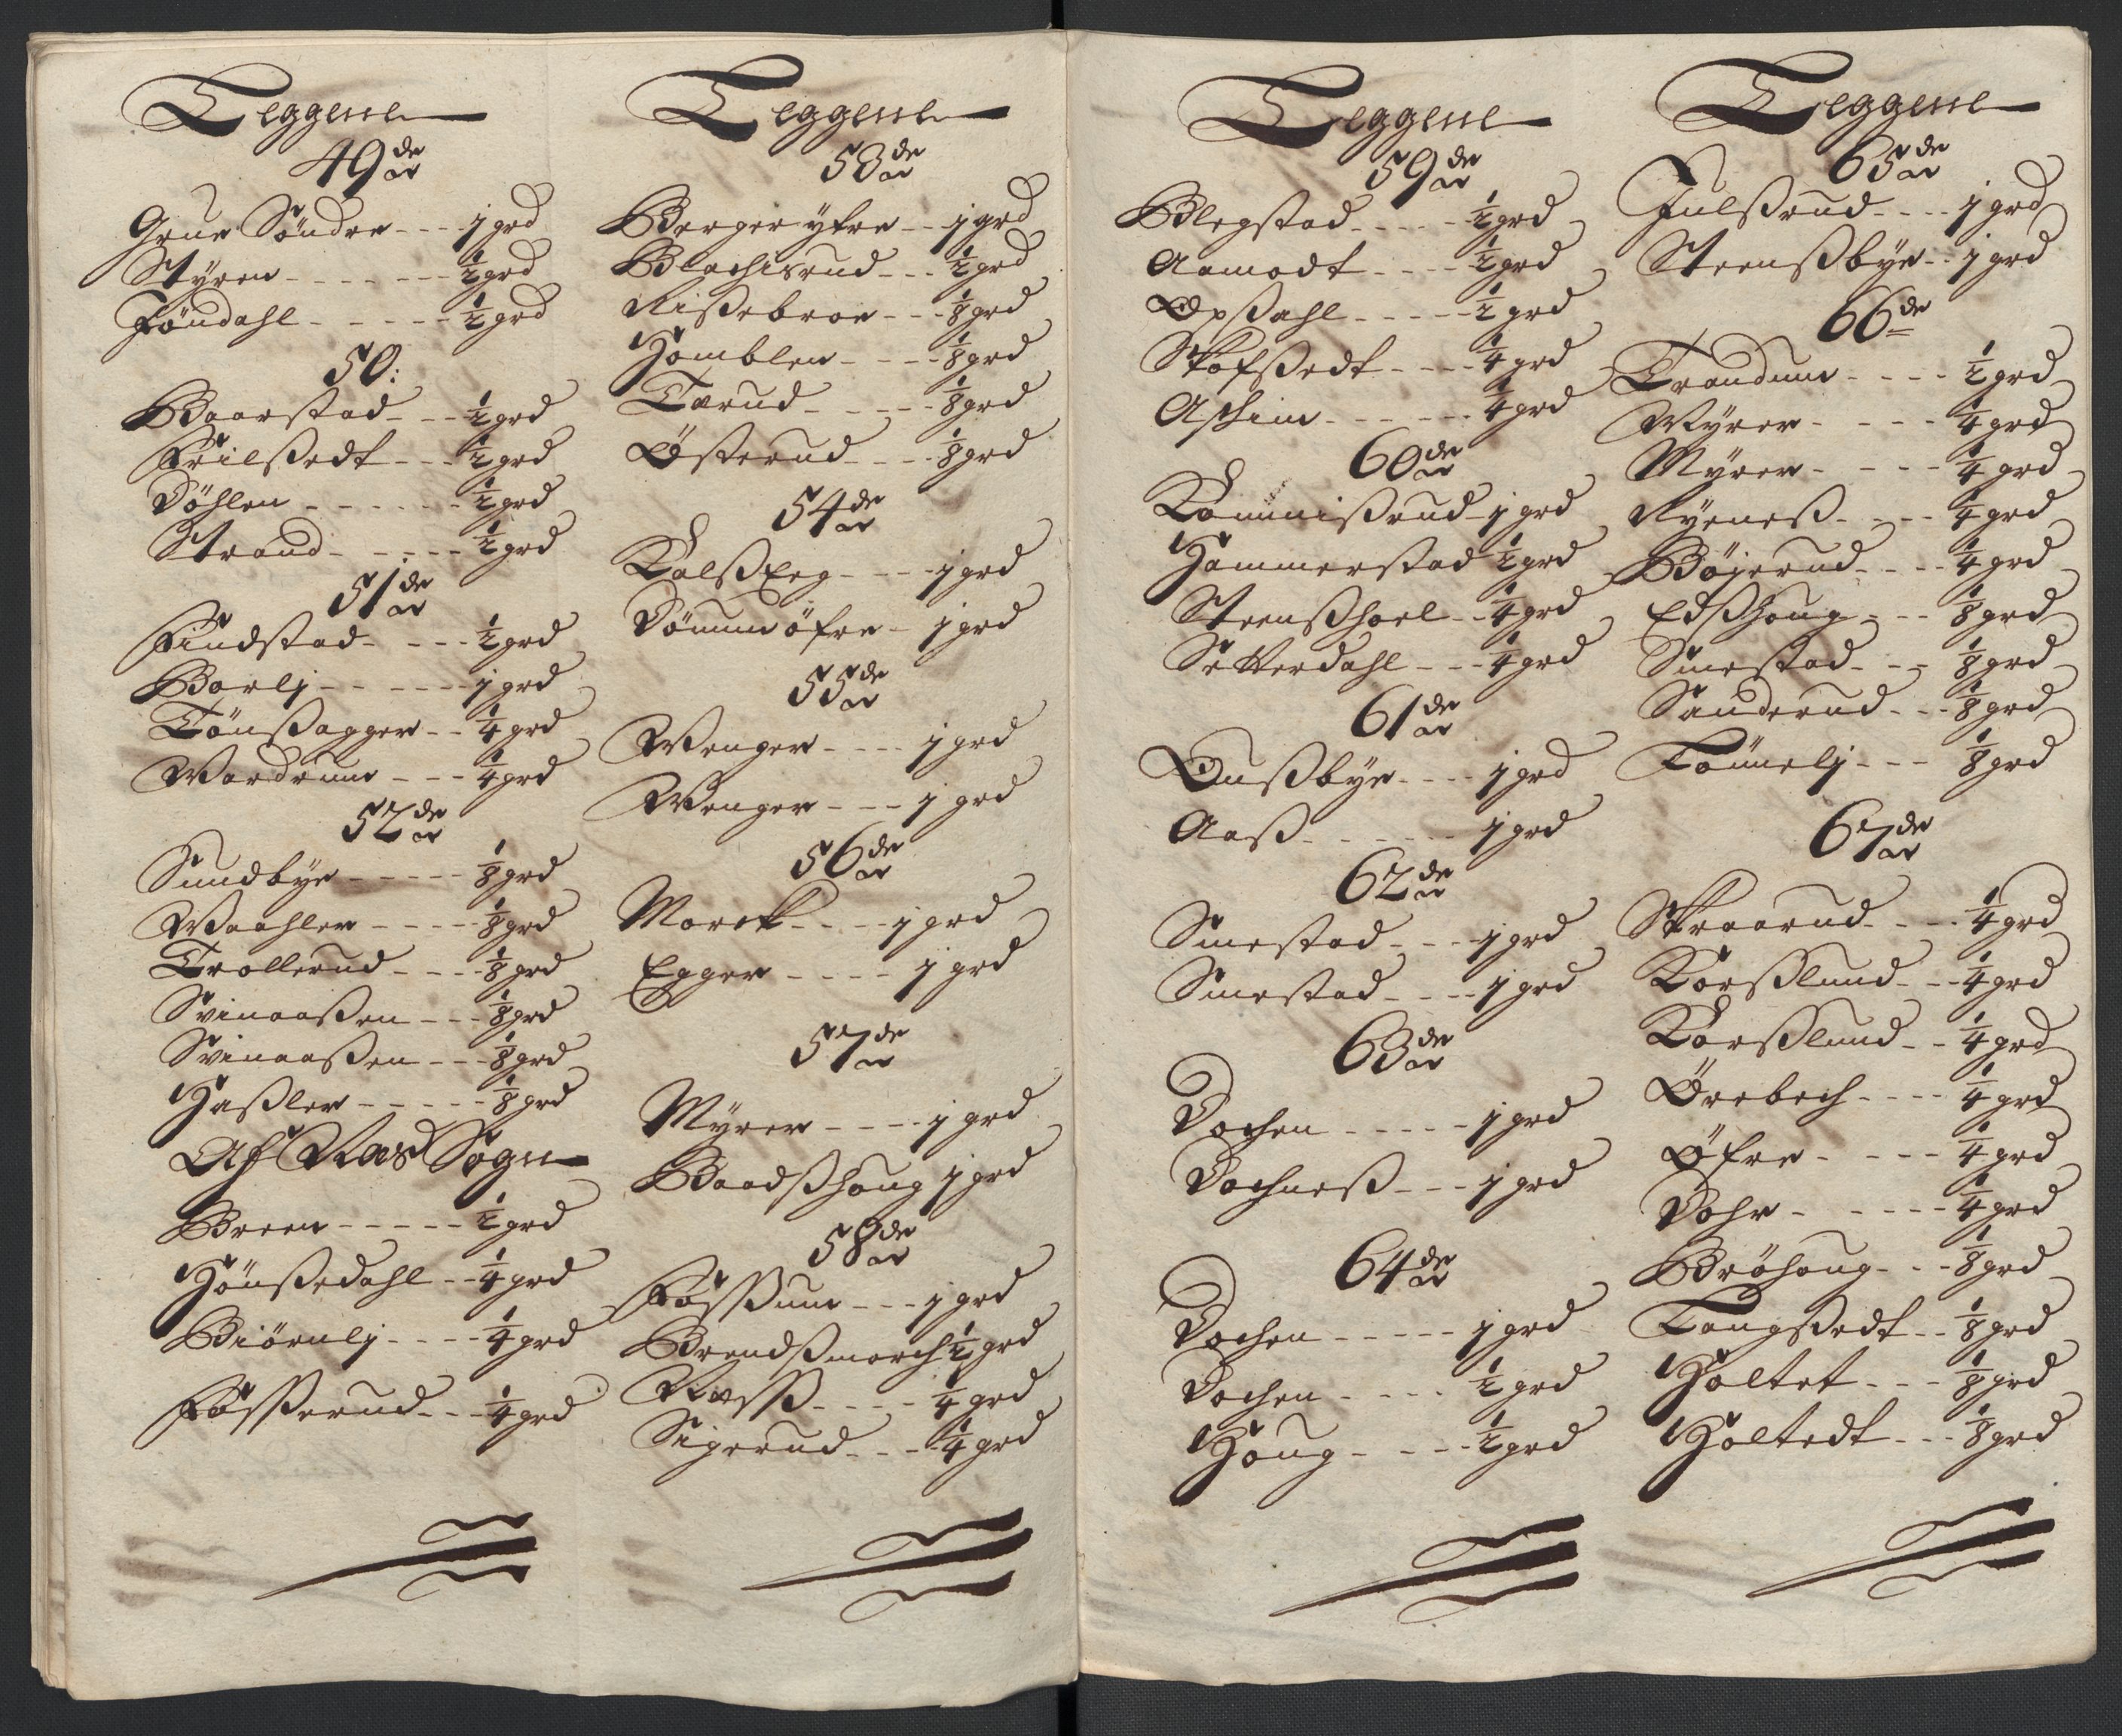 Leggene
49de
Grue Söndre - - - 1 grd
Styren - - - - - - ½ grd
Föndahl - - - - - ½ grd
50:
Baarstad - - - ½ grd
Frilßedt - - - ½ grd
Döhlen - - - - - - ½ grd
Strand - - - - - ½ grd
51de
Findstad - - - - ½ grd
Borlj - - - - - - 1 grd
Tönßagger - - ¼ grd
Wardrum - - - ¼ grd
52de
Sundbye - - - - - ⅛ grd
Waahler - - - - ⅛ grd
Trollerud - - - - ⅛ grd
Svinaaßen - - - ⅛ grd
Svinaaßen - - - ⅛ grd
Haßler - - - - - ⅛ grd
Af Aas Sogn
Breen - - - - - ½ grd
Hönßedahl - - ¼ grd
Biörnlj - - - - ¼ grd
Fösßerud - - - ¼ grd
Leggene
53de
Berger yfre - - 1 grd
Blachisrud - - - ½ grd
Rißebroe - - - ⅛ grd
Homblen - - - - ⅛ grd
Tærud - - - - - ⅛ grd
Österud - - - - ⅛ grd
54de
Kalßeeg - - - 1 grd
Dömme öfre - 1 grd
55de
Wenger - - - - 1 grd
Wenger - - - 1 grd
56de
Morck - - - - 1 grd
Egger - - - - 1 grd
57de
Myrer - - - - 1 grd
Baadßhoug 1 grd
58de
Fosßum - - - 1 grd
Brendßmorch ½ grd
Næsß - - - - ¼ grd
Sigerud - - - ¼ grd
Leggene
59de
Blegstad - - - - - ½ grd
Aamodt - - - - ½ grd
Opßahl - - - - - ½ grd
Skofßedt - - - - ¼ grd
Askim - - - - - - ¼ grd
60de
Kommißrud - 1 grd
Hammerstad ½ grd
Steenßhoel - - ¼ grd
Setterdahl - - - ¼ grd
61de
Dußbye - - - - 1 grd
Aaß - - - - - - 1 grd
62de
Smestad - - - 1 grd
Smestad - - - - 1 grd
63de
Dochen - - - - - 1 grd
Dochneß - - - 1 grd
64de
Dochen - - - - - 1 grd
Dochen - - - - ½ grd
Houg - - - - ½ grd
Leggene
65de
Fulßrud - - - - 1 grd
Steenßbye - - 1 grd
66de
Trandum - - - - ½ grd
Myrer - - - - ¼ grd
Myrer - - - - ¼ grd
Ryeneß - - - - ¼ grd
Böjerud - - - - ¼ grd
Edßhoug - - - ⅛ grd
Smestad - - - ⅛ grd
Sanderud - - - ⅛ grd
Tömmelj - - - ⅛ grd
67de
Skraarud - - - - ¼ grd
Korßlund - - - ¼ grd
Korßlund - - ¼ grd
Örebech - - - - ¼ grd
Öfre - - - - ¼ grd
Dohr - - - - - ¼ grd
Bröhoug - - - ⅛ grd
Langßedt - - - ⅛ grd
Holtet - - - ⅛ grd
Holtedt - - - ⅛ grd